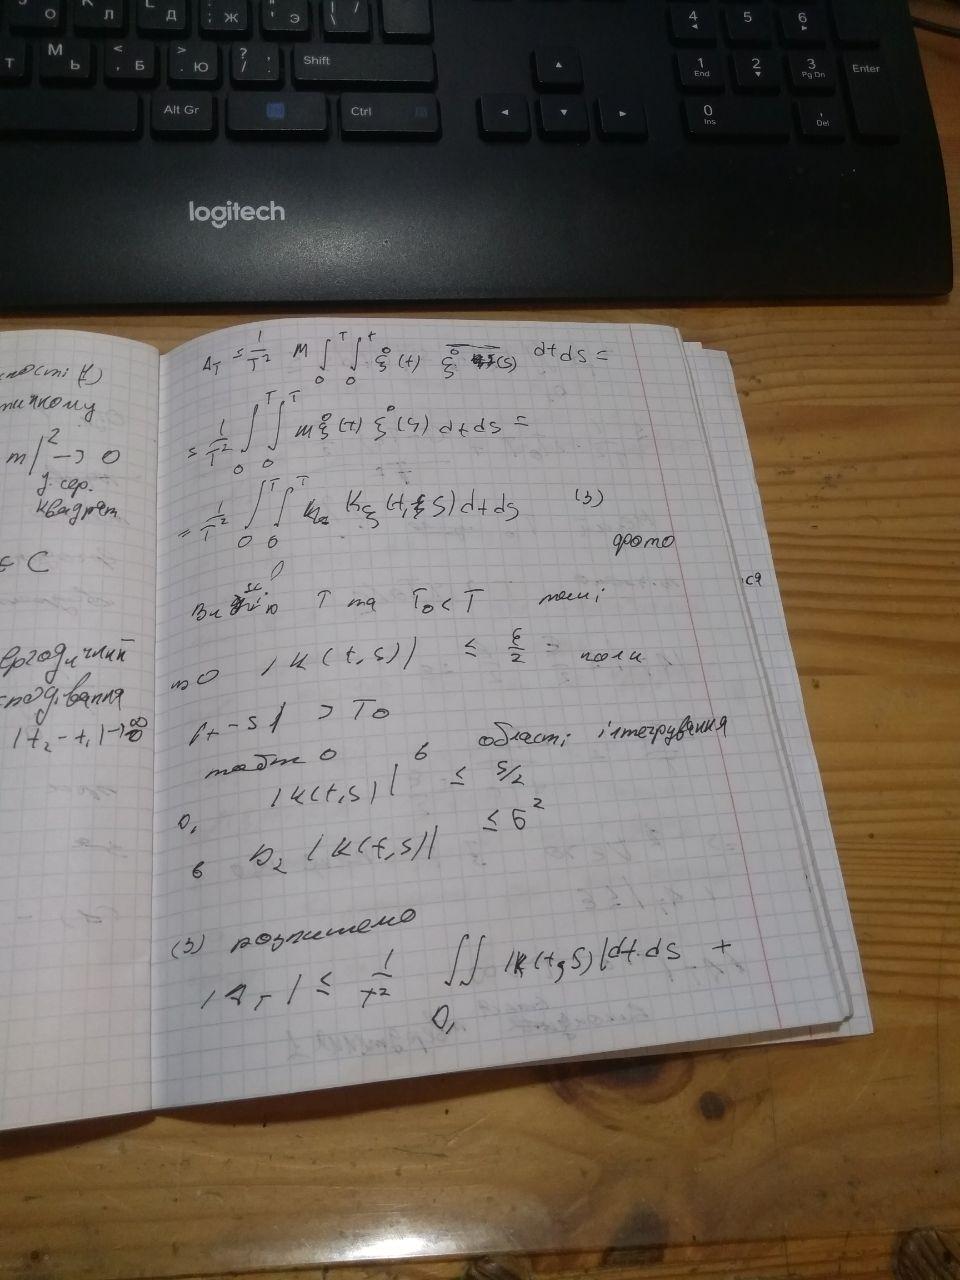 О К Л Д ; Ж : " Э | / \
Т М Ь < , Б > . Ю ? / ; . Shift
Alt Gr Ctrl
4 5 6
1 End 2 3 Pg Dn Enter
0 Ins , Del
logitech
ності
тичному
m|² → 0
у сер.
квадрат
∈ C
ергодичний
сподівання
|t₂ - t₁| → ∞
A_T = 1/T² M ∫₀ᵀ ∫₀ᵗ ξ̊(t) ξ̊(s) dt ds =
= 1/T² ∫₀ᵀ ∫₀ᵀ m ξ̊(t) ξ̊(s) dt ds =
= 1/T² ∫₀ᵀ ∫₀ᵀ K_ξ(t, s) dt ds (3)
фото
T та T₀ < T
|K(t,s)| ≤ ε/2 = коли
|t - s| > T₀
тобто в області інтегрування
D₁ |K(t,s)| ≤ 5/2
в D₂ |K(t,s)| ≤ б²
(3) розпишемо
|A_T| ≤ 1/T² ∬ |K(t,s)| dt ds +
D₁
ся